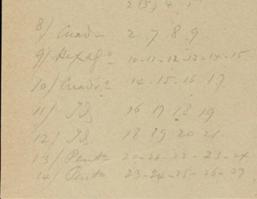 2 (3) 4 5
8) Cuad.º 2 7 8 9
9) Hexag.º 10-11-12-13-14-15
10) Cuad.º 14-15-16 17
11) Id 16 17 18 19
12) Id 18 19 20 21
13) Pent.º 22-23-24
14) Pent.º 23-24-25-26-27